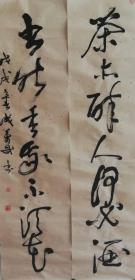 茶亦醉人何必酒
书能香我不须花
戊戌年